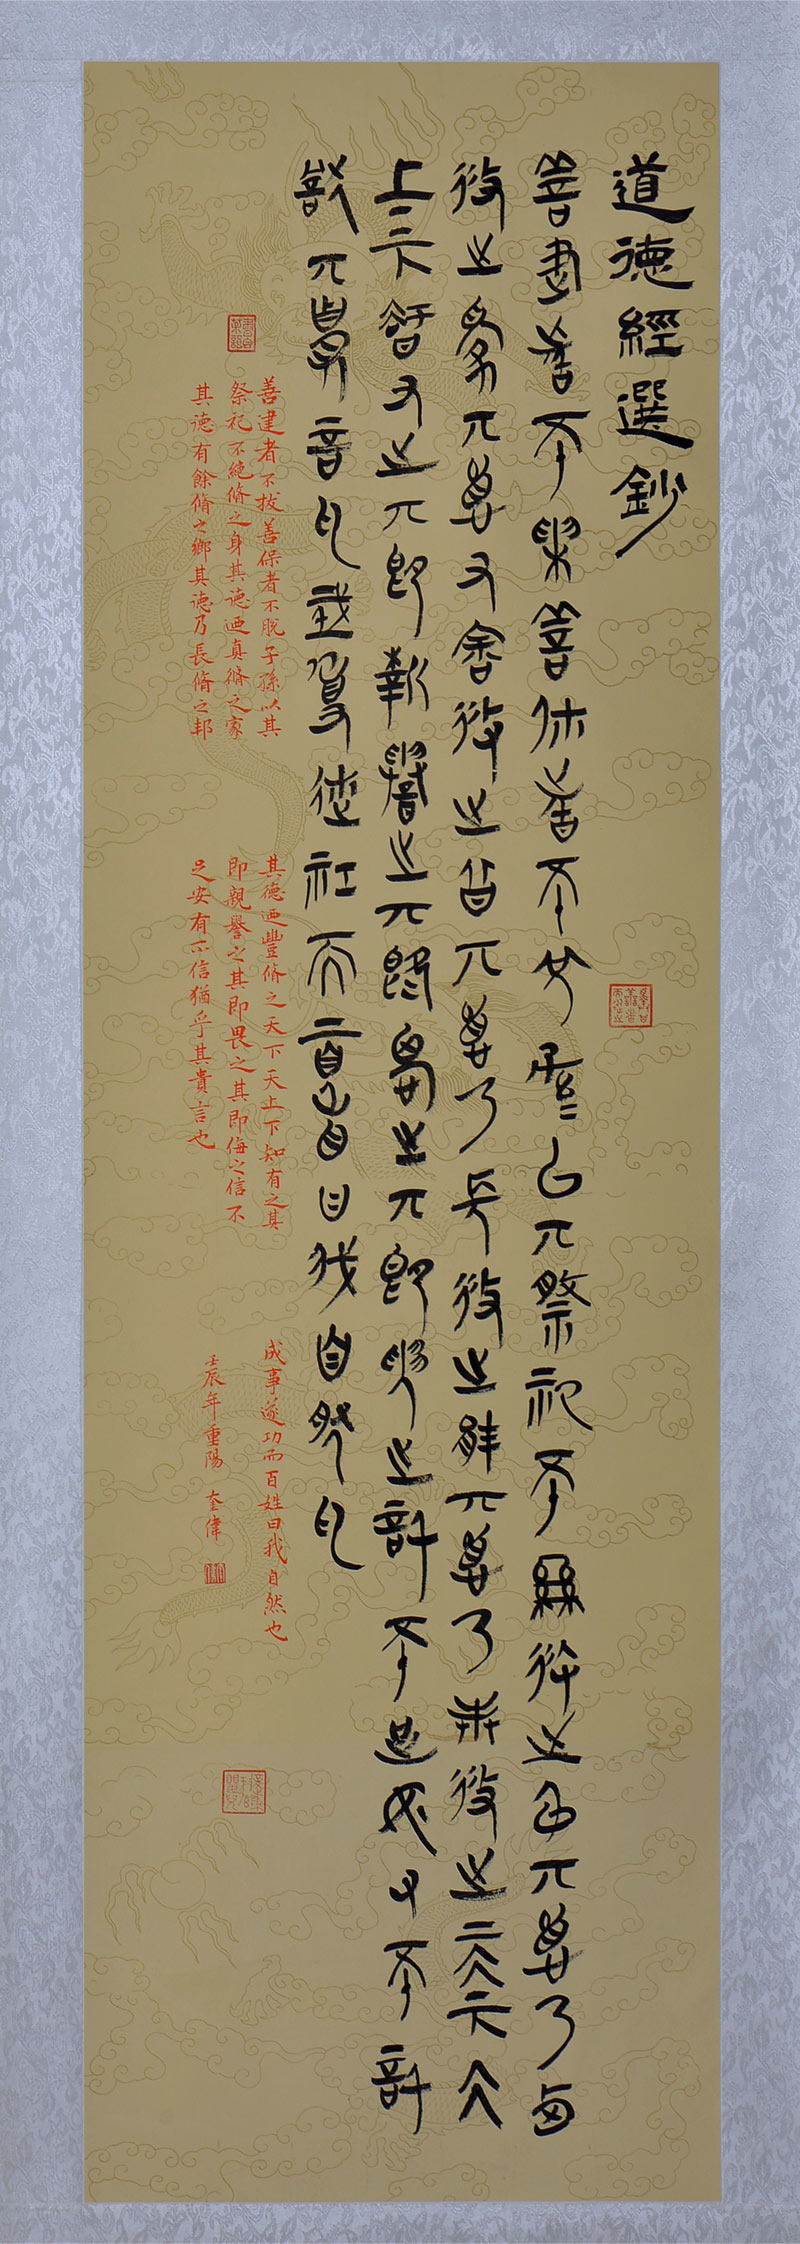 道德經選鈔
善建者不拔善保者不脫子孫以其祭祀不絕脩之身其德乃貞
脩之家其德有餘脩之鄉其德乃長脩之邦其德乃豐脩之天下天
上下智有之其即親譽之其既畏之其即侮之信不足安有不信
猷乎其貴言也成事遂功而百姓曰我自然也
善建者不拔善保者不脫子孫以其
祭祀不絕脩之身其德迺真脩之家
其德有餘脩之鄉其德乃長脩之邦
其德迺豐脩之天下天上下知有之其
即親譽之其即畏之其即侮之信不
足安有不信猶乎其貴言也
成事遂功而百姓曰我自然也
壬辰年重陽 奎偉